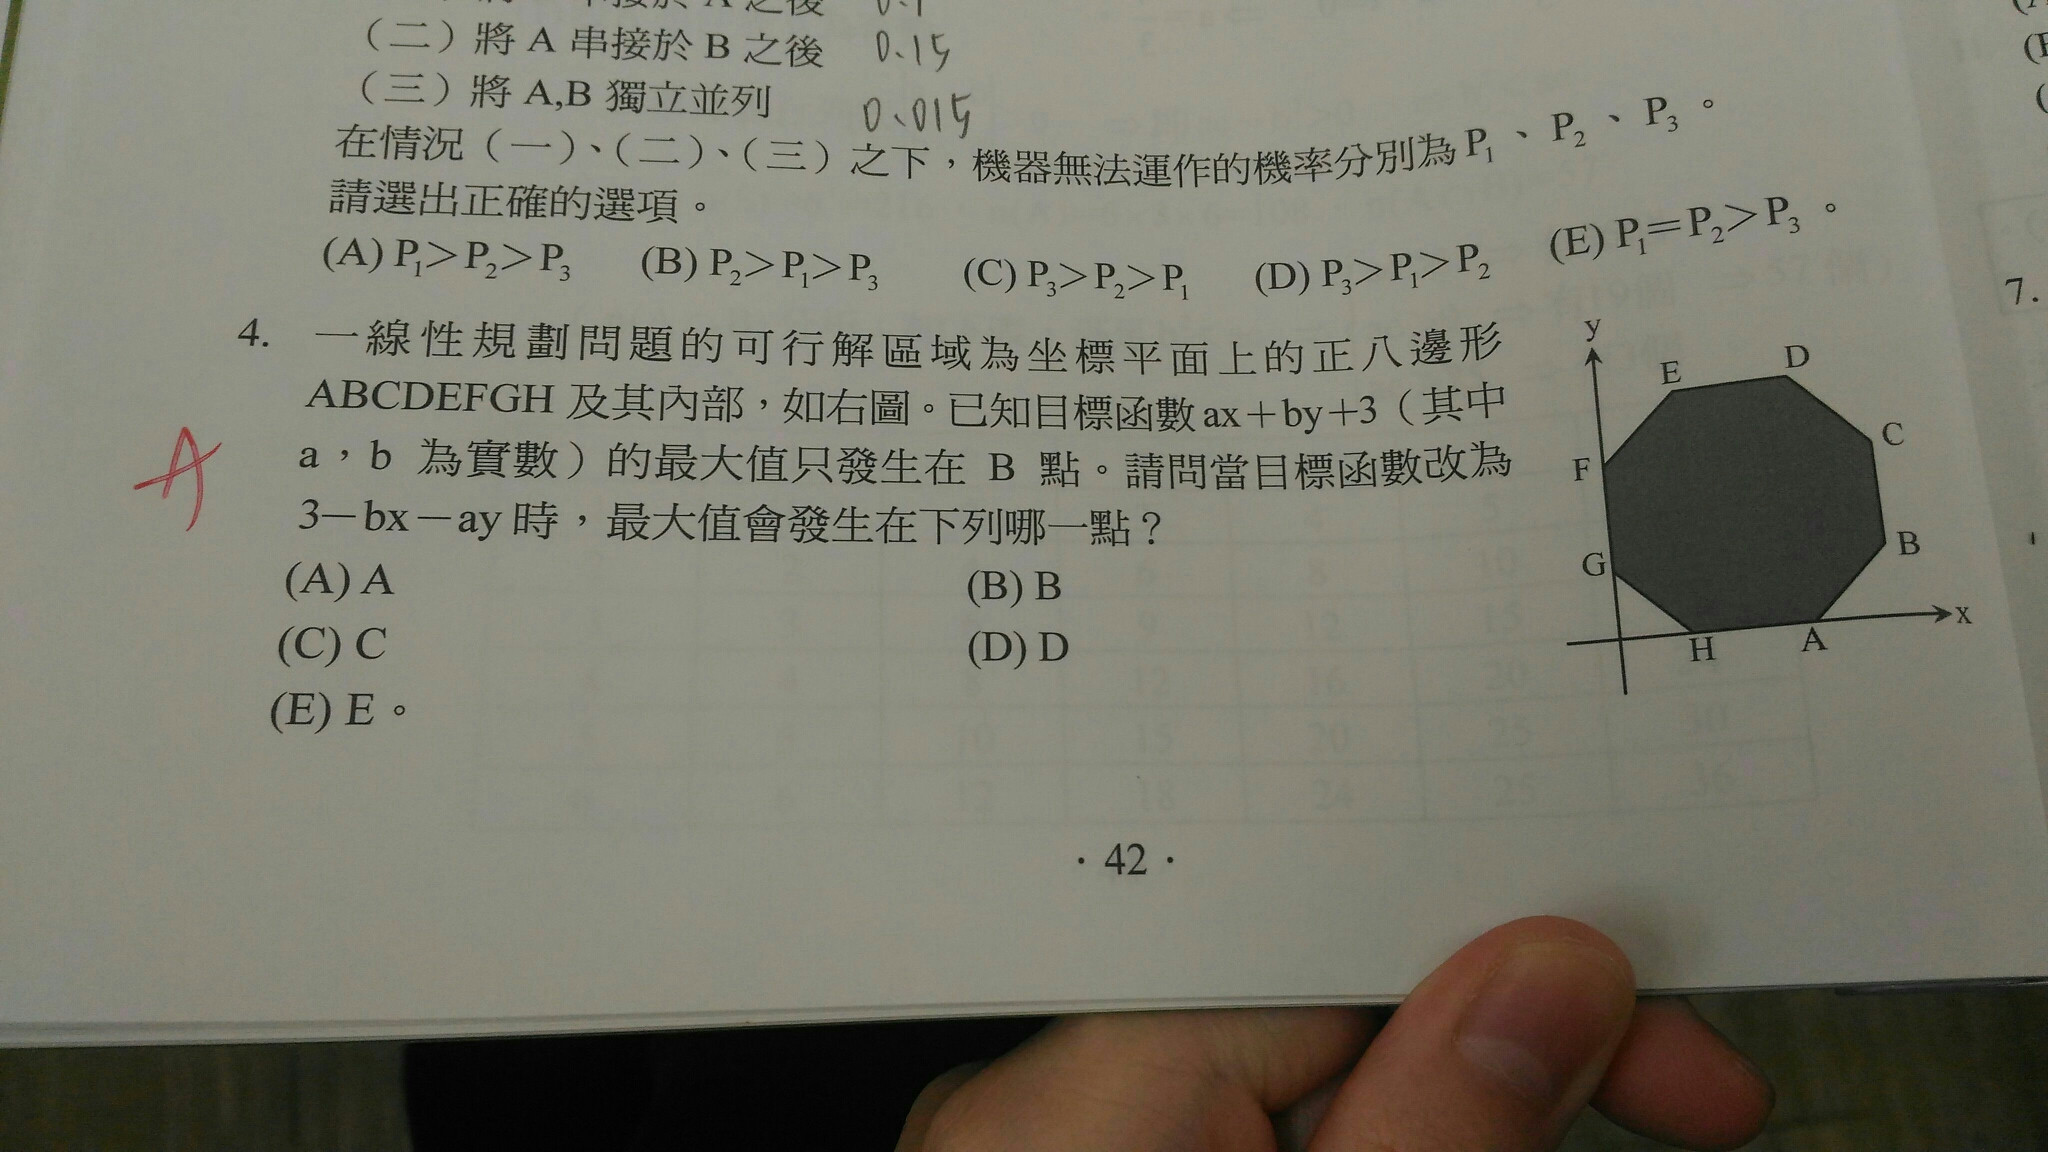 A 之後 0.1
（二）將 A 串接於 B 之後 0.15
（三）將 A,B 獨立並列 0.015
在情況（一）、（二）、（三）之下，機器無法運作的機率分別為 P₁、P₂、P₃。
請選出正確的選項。
(A) P₁＞P₂＞P₃ (B) P₂＞P₁＞P₃ (C) P₃＞P₂＞P₁ (D) P₃＞P₁＞P₂ (E) P₁＝P₂＞P₃。
4. 一線性規劃問題的可行解區域為坐標平面上的正八邊形
ABCDEFGH 及其內部，如右圖。已知目標函數 ax＋by＋3（其中
a，b 為實數）的最大值只發生在 B 點。請問當目標函數改為
3－bx－ay 時，最大值會發生在下列哪一點？
A
(A) A (B) B
(C) C (D) D
(E) E。
y
E D
C
F
B
G
x
H A
7.
·42·